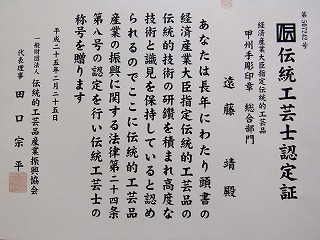 第507242号
伝統工芸士認定証
経済産業大臣指定伝統的工芸品
甲州手彫印章 総合部門
遠藤 靖 殿
あなたは長年にわたり頭書の
経済産業大臣指定伝統的工芸品の
伝統的技術の研鑽を積まれ高度な
技術と識見を保持していると認め
られるのでここに伝統的工芸品
産業の振興に関する法律第二十四条
第八号の認定を行い伝統工芸士の
称号を贈ります
平成二十五年二月二十五日
一般財団法人 伝統的工芸品産業振興協会
代表理事 田口宗平